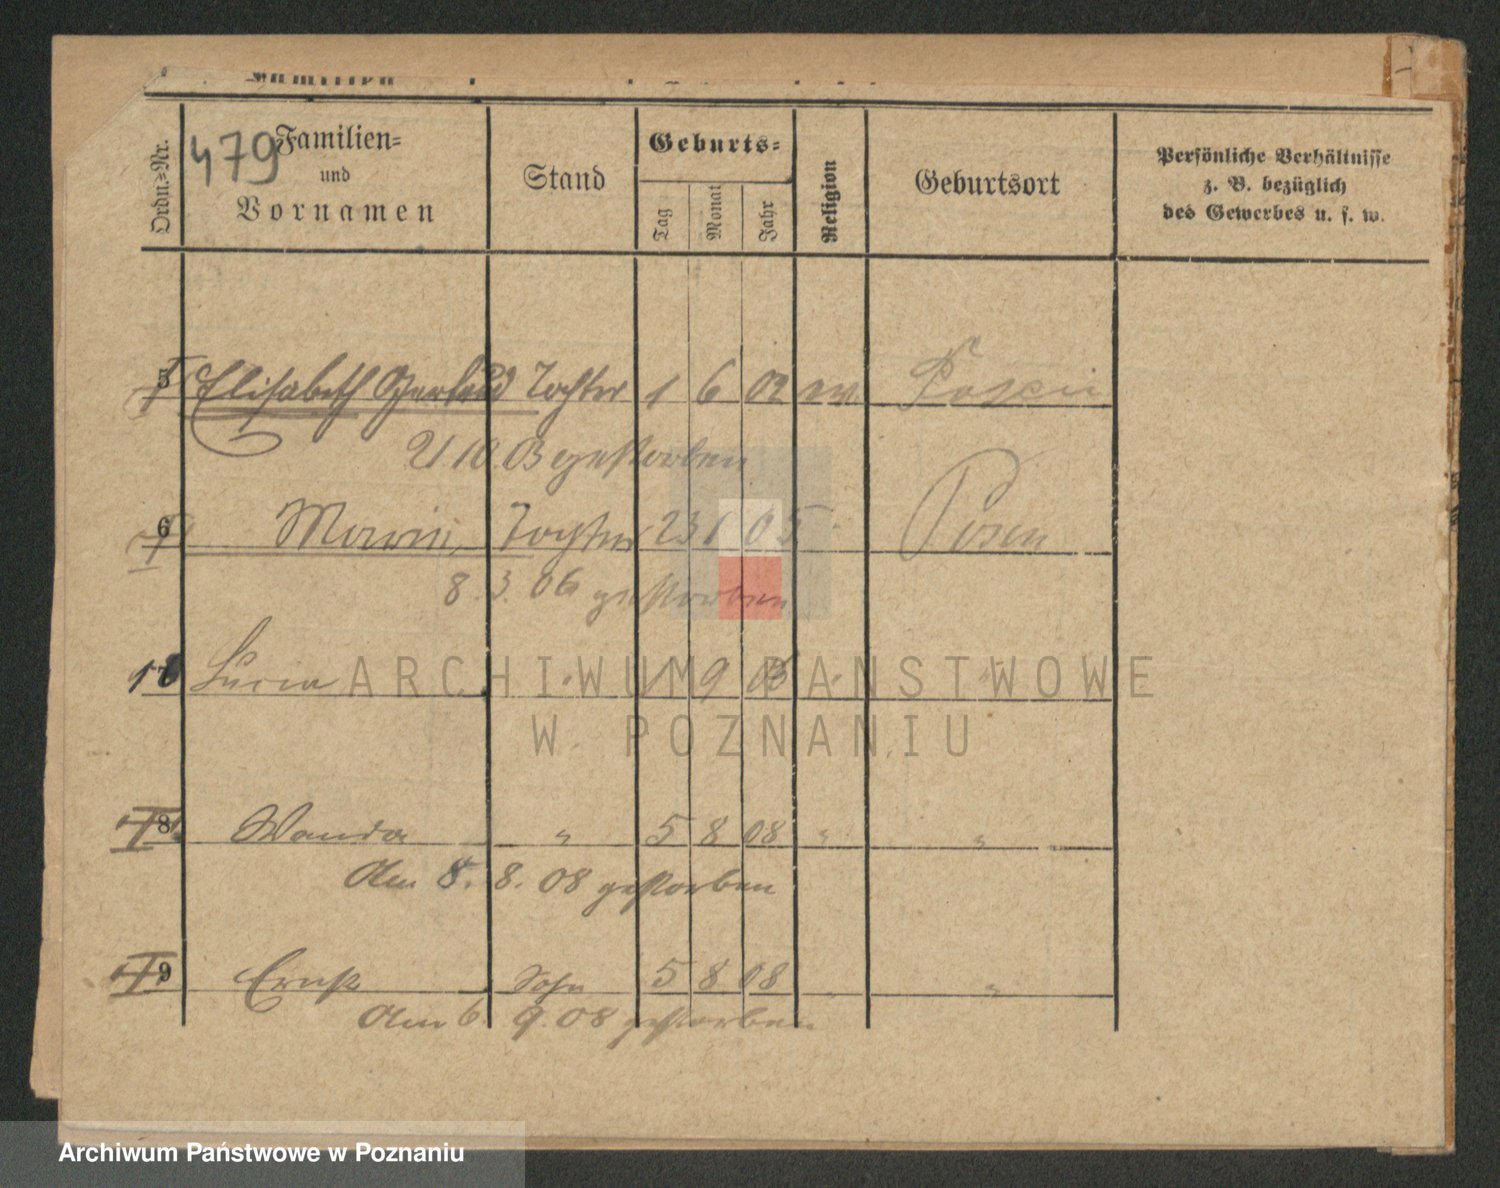 479
Ordn.=Nr.
Familien=
und
Vornamen
Stand
Geburts=
Tag
Monat
Jahr
Religion
Geburtsort
Persönliche Verhältnisse
z. B. bezüglich
des Gewerbes u. s. w.
5 Elisabeth Tochter 1 6 02 ev Posen
10. 03 gestorben
6 Tochter 23 1 05 Posen
8. 3. 06 gestorben
ARCHIWUM PAŃSTWOWE
W POZNANIU
8 Wanda " 5 8 08 " "
Am 8. 8. 08 gestorben
9 Ernst Sohn 5 8 08 "
Am 6. 9. 08 gestorben
Archiwum Państwowe w Poznaniu